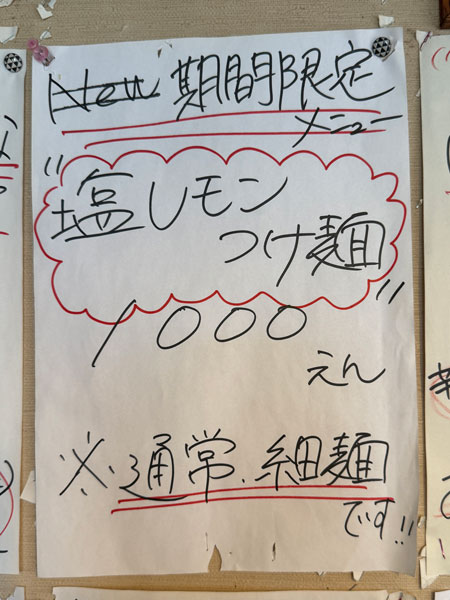 New 期間限定
メニュー
"塩レモン
つけ麺"
1000
えん
※通常、細麺
です!!